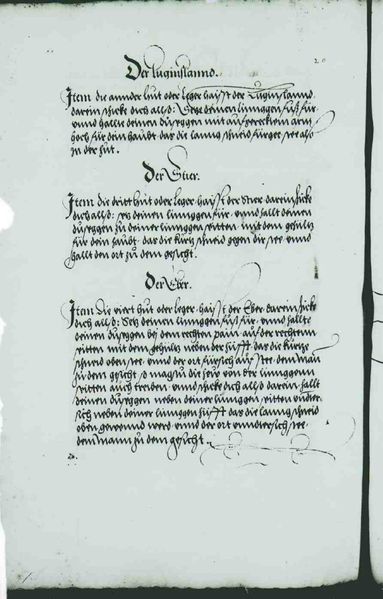 20
Der luginslannd.
Item die annder hut oder leger haisst der Luginslannd
darein schicke dich allso: Setz deinen linnggen fuß für
vnnd hallte deinen duseggen mit ausgerecktem arm
hoch für dein haubt das die lanng schneid fürgee stee also
in der hut.
Der Stier.
Item die dritt hut oder leger haisst der Stier darein schicke
dich allso: Setz deinen linnggen für vnnd hallt deinen
duseggen zu deiner linnggen seitten mit dem gehultz
für dein haubt das die kurtz schneid gegen dir stee vnnd
hallt den ort zu dem gesicht.
Der Eber.
Item Die viert hut oder leger haisst der Eber darein schicke
dich allso: Setz deinen linnggen fuß für vnnd hallte
deinen duseggen bej dem rechten pain auf der rechtenn
seitten mit dem gehultz neben der hüfft das die kurtze
schneid oben stee vnnd der ort fürsich auf stee dem man
zu dem gesicht so magstu die hew von der linnggenn
seitten auch treiben vnnd schicke dich allso darein hallt
deinen duseggen neben deiner linnggen seitten vnnder
sich neben deiner linnggen hüfft das die lanng schneid
oben gewennd werd vnnd der ort vnndersich stee
dem mann zu dem gesicht